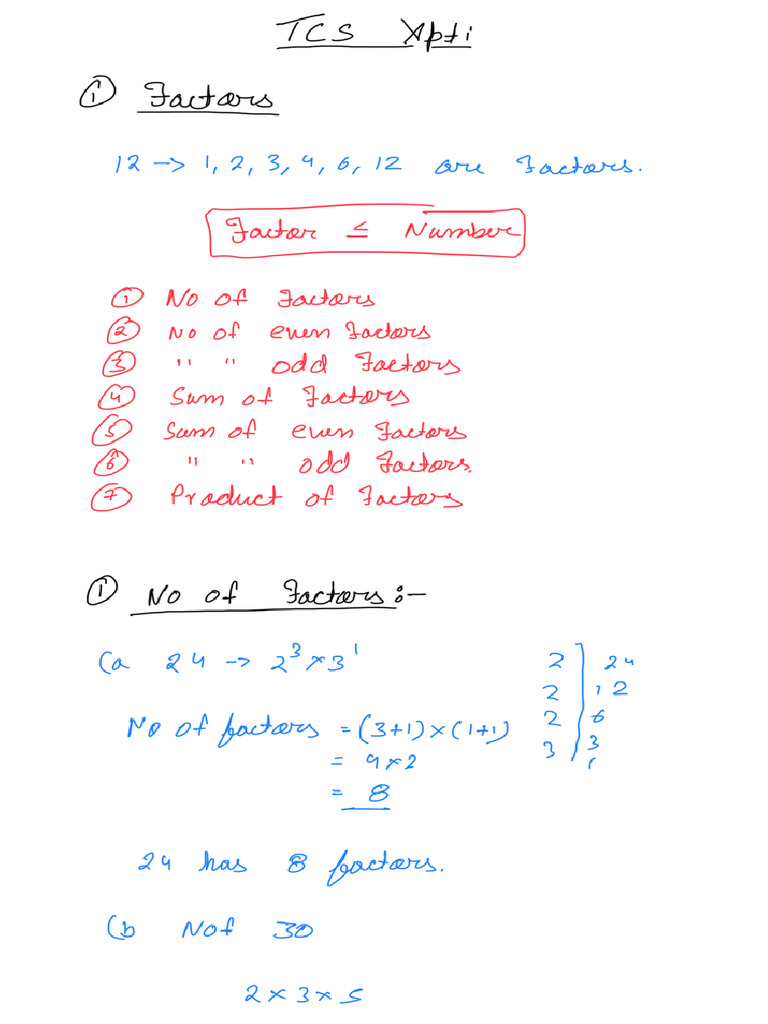 TCS Apti
① Factors
12 → 1, 2, 3, 4, 6, 12 are Factors.
Factor ≤ Number
① No of Factors
② No of even Factors
③ " " odd Factors
④ Sum of Factors
⑤ Sum of even Factors
⑥ " " odd Factors.
⑦ Product of Factors
① No of Factors:-
(a 24 → 2³ × 3¹
2 | 24
2 | 12
2 | 6
3 | 3
1
No of factors = (3+1) × (1+1)
= 4 × 2
= 8
24 has 8 factors.
(b Nof 30
2 × 3 × 5